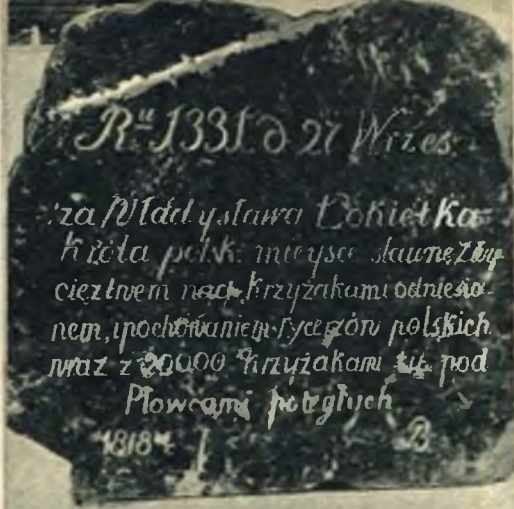 Rᵘ 1331 d 27 Wrześ
za Władysława Łokietka
Króla polsk: mieysce sławne Zwy
cięztwem nad Krzyżakami odniesio-
nem, i pochowaniem rycerzów polskich
wraz z 20000 Krzyżakami tu pod
Płowcami poległych
1818 r B